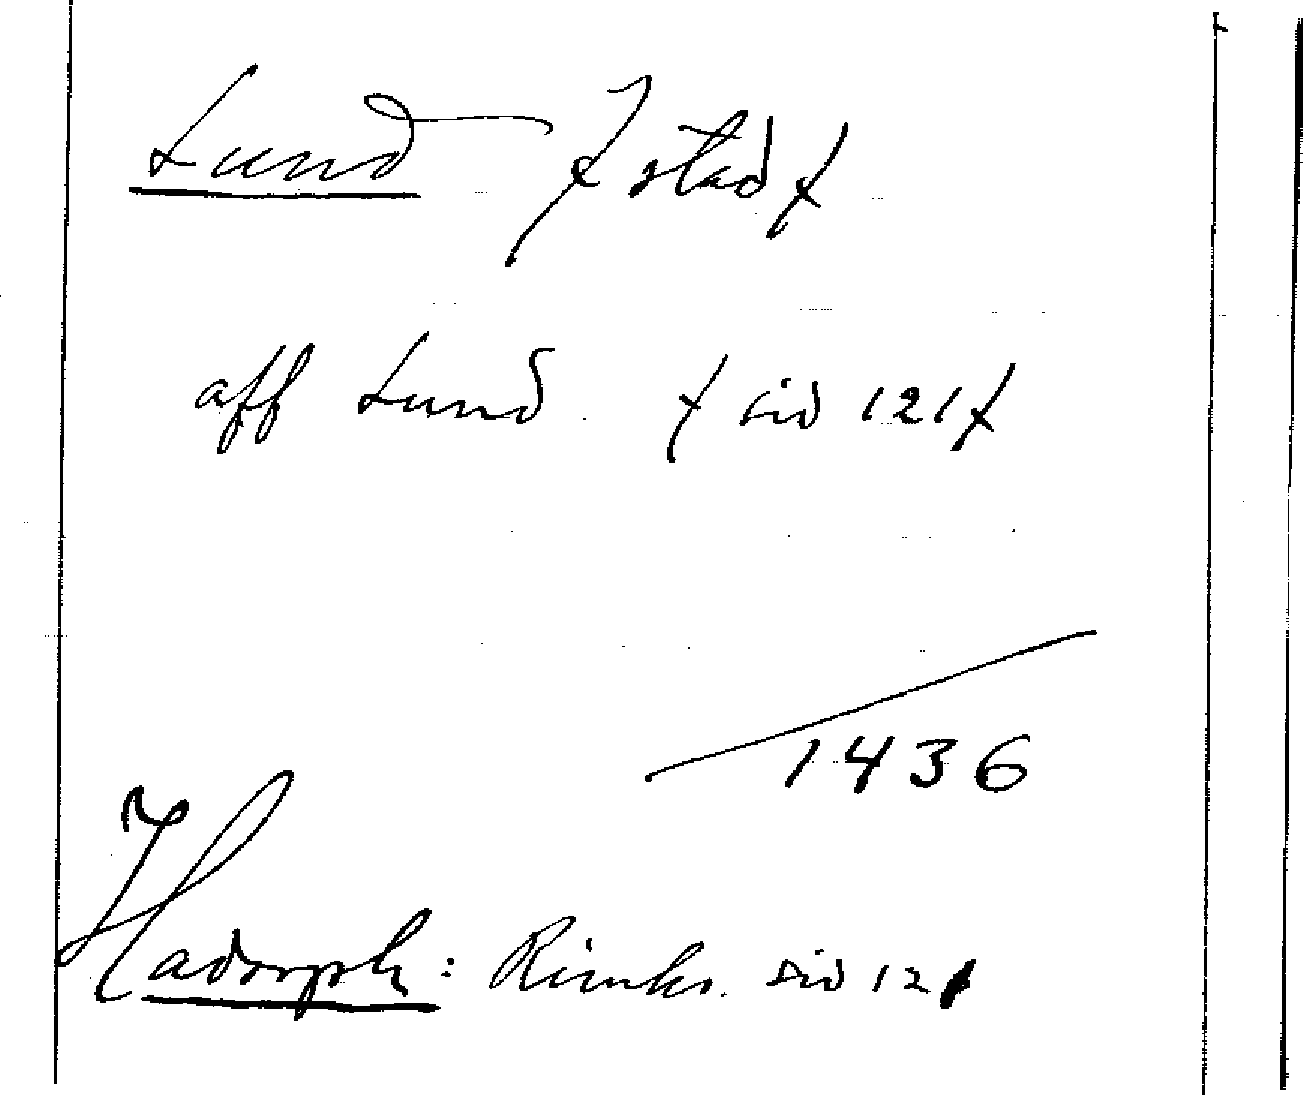 Lund /stad/
aff Lund. /sid 121/
1436
Hadorph: Rimkr. sid 121